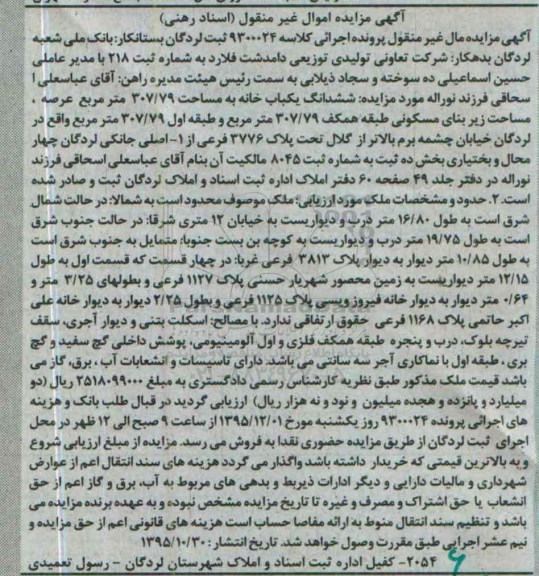 آگهی مزایده اموال غیر منقول (اسناد رهنی)
آگهی مزایده مال غیر منقول پرونده اجرائی کلاسه ۹۳۰۰۰۲۴ ثبت لردگان بستانکار: بانک ملی شعبه
لردگان بدهکار: شرکت تعاونی تولیدی توزیعی دامدشت فلارد به شماره ثبت ۲۱۸ با مدیر عاملی
حسین اسماعیلی ده سوخته و سجاد ذیلابی به سمت رئیس هیئت مدیره راهن: آقای عباسعلی ا
سحاقی فرزند نوراله مورد مزایده: ششدانگ یکباب خانه به مساحت ۳۰۷/۷۹ متر مربع عرصه ،
مساحت زیر بنای مسکونی طبقه همکف ۳۰۷/۷۹ متر مربع و طبقه اول ۳۰۷/۷۹ متر مربع واقع در
لردگان خیابان چشمه برم بالاتر از گلال تحت پلاک ۳۷۷۶ فرعی از ۱-اصلی جانکی لردگان چهار
محال و بختیاری بخش ده ثبت به شماره ثبت ۸۰۴۵ مالکیت آن بنام آقای عباسعلی اسحاقی فرزند
نوراله در دفتر جلد ۴۹ صفحه ۶۰ دفتر املاک اداره ثبت اسناد و املاک لردگان ثبت و صادر شده
است. ۲. حدود و مشخصات ملک مورد ارزیابی: ملک موصوف محدود است به شمالا: در حالت شمال
شرق است به طول ۱۶/۸۰ متر درب و دیواریست به خیابان ۱۲ متری شرقا: در حالت جنوب شرق
است به طول ۱۹/۷۵ متر درب و دیواریست به کوچه بن بست جنوبا: متمایل به جنوب شرق است
به طول ۱۰/۸۵ متر دیوار به دیوار پلاک ۳۸۱۳ فرعی غربا: در چهار قسمت که قسمت اول به طول
۱۲/۱۵ متر دیواریست به زمین محصور شهریار حسنی پلاک ۱۱۲۷ فرعی و بطولهای ۳/۲۵ متر و
۰/۶۴ متر دیوار به دیوار خانه فیروز ویسی پلاک ۱۱۲۵ فرعی و بطول ۲/۲۵ دیوار به دیوار خانه علی
اکبر حاتمی پلاک ۱۱۶۸ فرعی حقوق ارتفاقی ندارد. با مصالح: اسکلت بتنی و دیوار آجری، سقف
تیرچه بلوک، درب و پنجره طبقه همکف فلزی و اول آلومینیومی، پوشش داخلی گچ سفید و گچ
بری، طبقه اول با نماکاری آجر سه سانتی می باشد. دارای تاسیسات و انشعابات آب ، برق، گاز می
باشد قیمت ملک مذکور طبق نظریه کارشناسی رسمی دادگستری به مبلغ ۲۵۱۸۰۹۹۰۰۰ ریال (دو
میلیارد و پانزده و هجده میلیون و نود و نه هزار ریال) ارزیابی گردید در قبال طلب بانک و هزینه
های اجرائی پرونده ۹۳۰۰۰۲۴ روز یکشنبه مورخ ۱۳۹۵/۱۲/۰۱ از ساعت ۹ صبح الی ۱۲ ظهر در محل
اجرای ثبت لردگان از طریق مزایده حضوری نقدا به فروش می رسد. مزایده از مبلغ ارزیابی شروع
و به بالاترین قیمتی که خریدار داشته باشد واگذار می گردد هزینه های سند انتقال اعم از عوارض
شهرداری و مالیات دارایی و دیگر ادارات ذیربط و بدهی های مربوط به آب، برق و گاز اعم از حق
انشعاب یا حق اشتراک و مصرف و غیره تا تاریخ مزایده مشخص نبوده و به عهده برنده مزایده می
باشد و تنظیم سند انتقال منوط به ارائه مفاصا حساب است هزینه های قانونی اعم از حق مزایده و
نیم عشر اجرایی طبق مقررت وصول خواهد شد. تاریخ انتشار: ۱۳۹۵/۱۰/۳۰
۲۰۵۴- کفیل اداره ثبت اسناد و املاک شهرستان لردگان - رسول تعمیدی